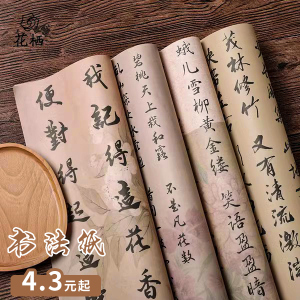 花栖
我記得這花香
便對得起
碧桃天上栽和露
不是凡花數
蛾儿雪柳黄金缕
笑语盈盈暗
茂林修竹
又有清流激湍
书法纸
4.3元起